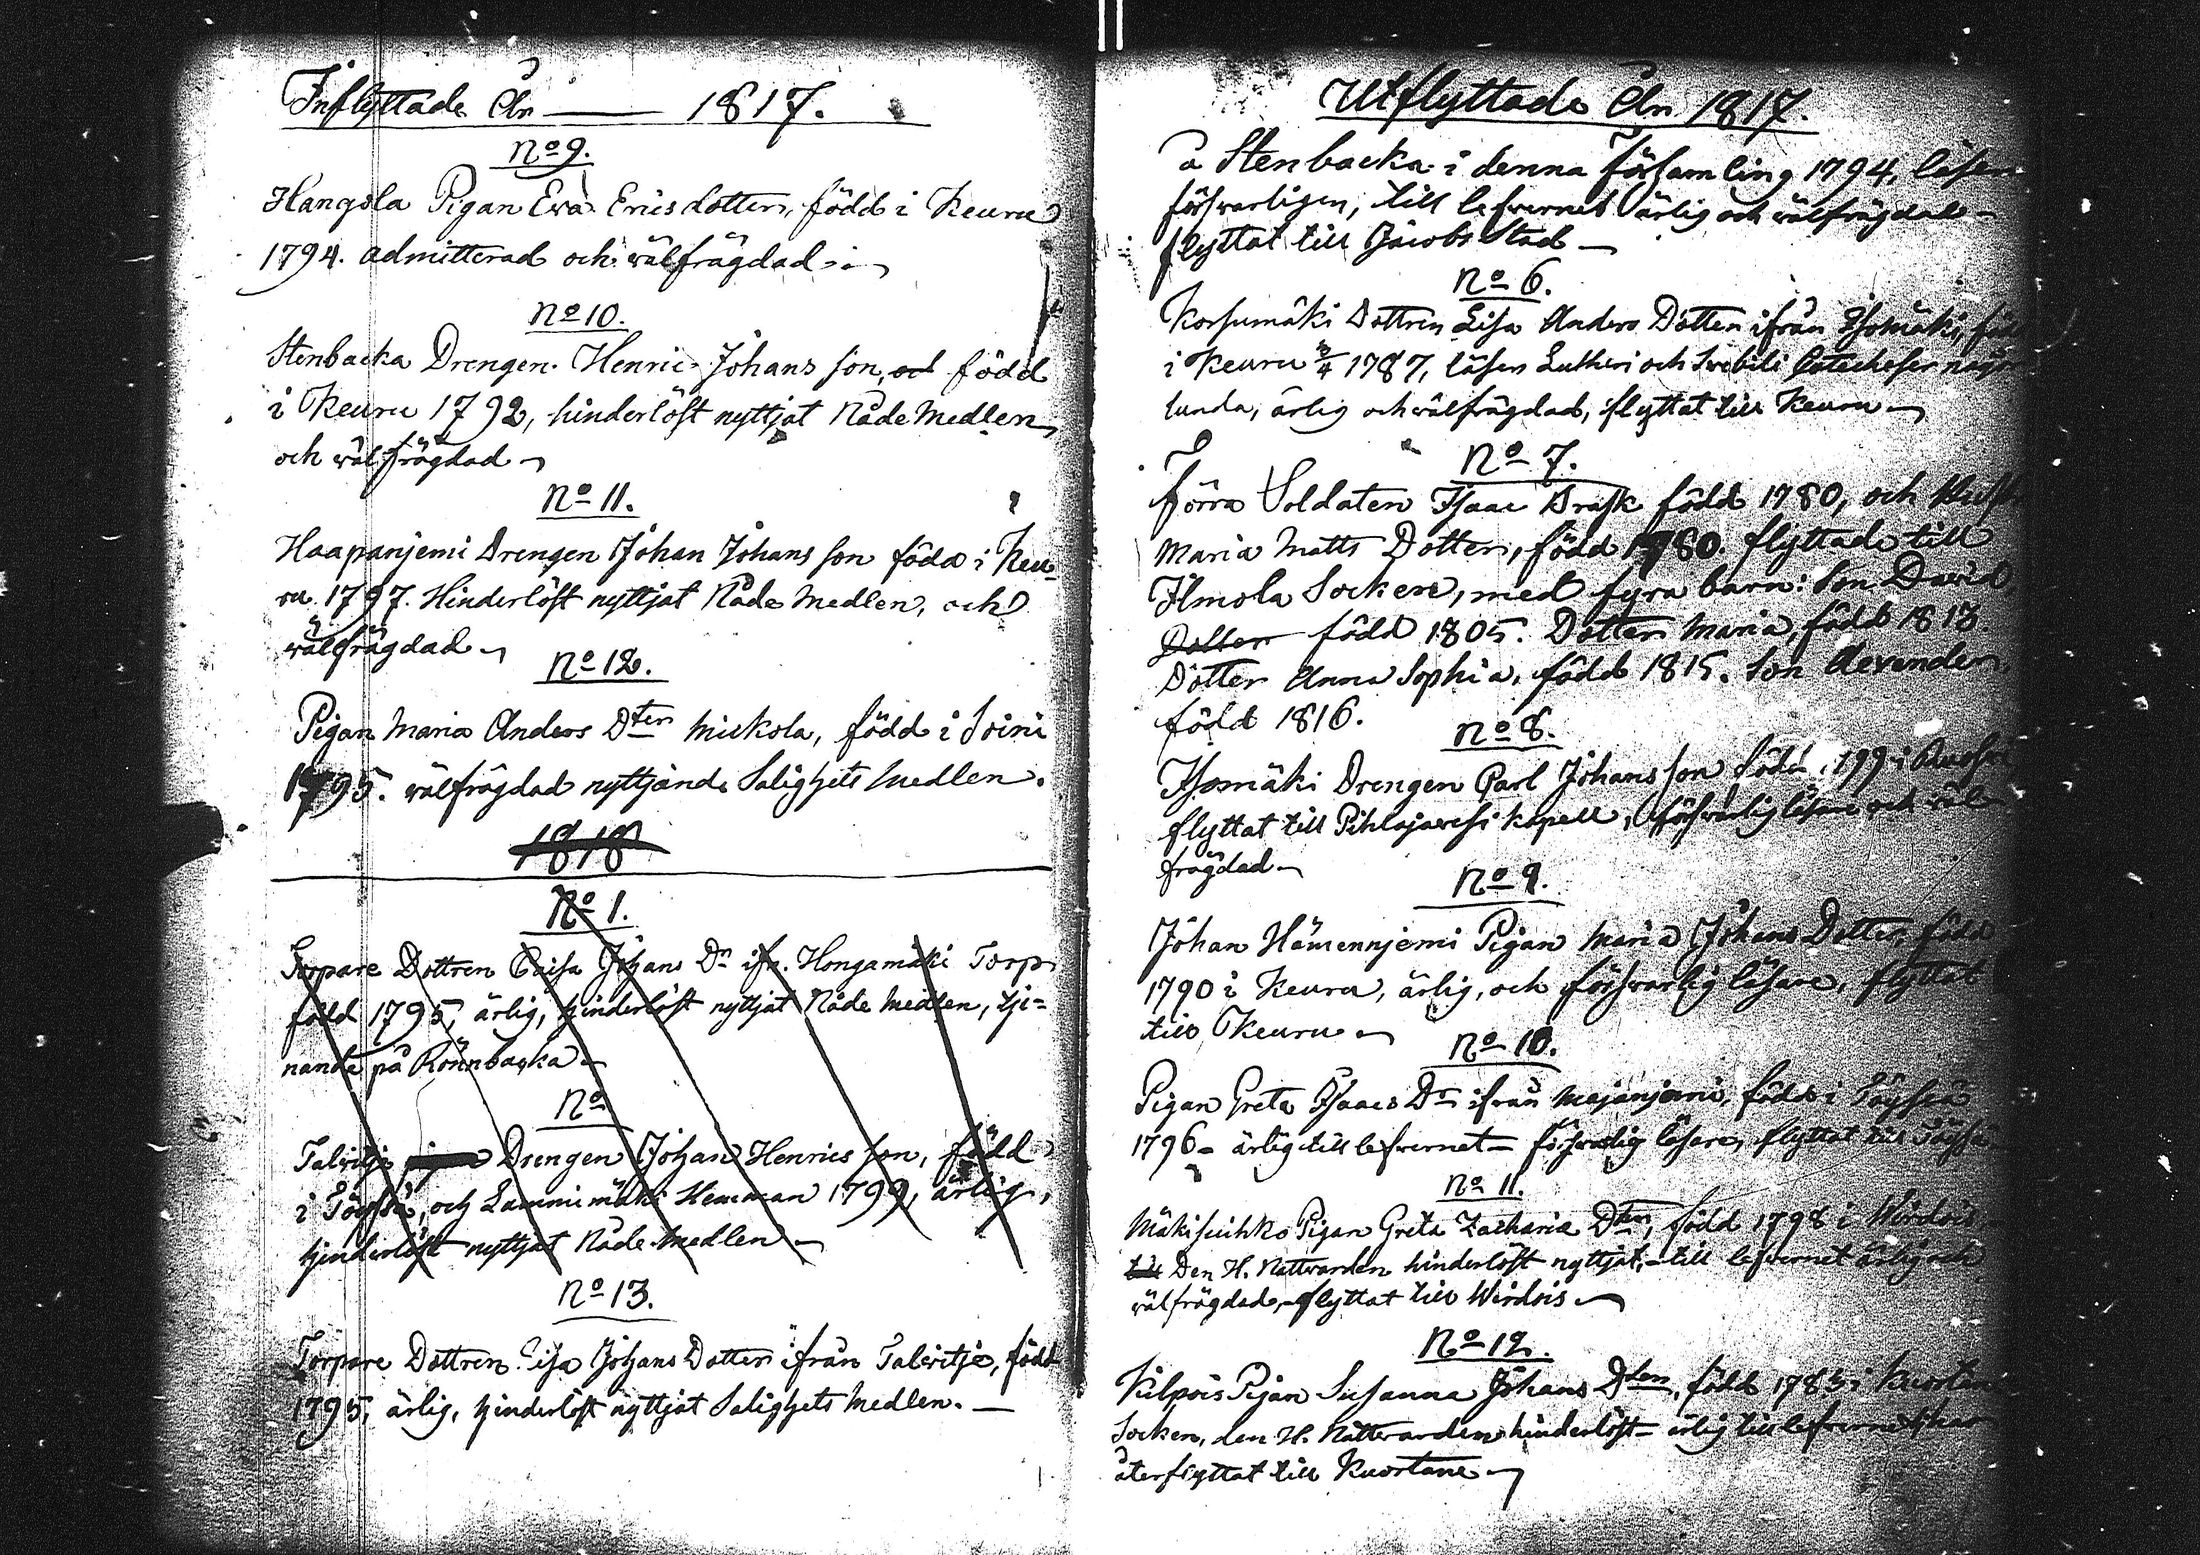 Inflyttade Åhr —— 1817.
No 9.
Hangola Pigan Eva Erics dotter, född i Keuru
1794. admitterad och wälfrägdad.
No 10.
Stenbacka Drengen Henric Johans son, och född
i Keuru 1792, hinderlöst nyttjat Nåde Medlen,
och wälfrägdad
No 11.
Haapanjemi Drengen Johan Johans son född i Keu-
ru 1797. Hinderlöst nyttjat Nåde Medlen, och
wälfrägdad
No 12.
Pigan Maria Anders Dter Mickola, född i Soini
1795. wälfrägdad nyttjande Salighets Medlen.
1818
No 1.
Torpare Dottren Caisa Johans Dr ifr. Hongamäki Torp
född 1795, ärlig, hinderlöst nyttjat Nåde Medlen, tje=
nande på Rönnbacka
No
Talvitje Drengen Johan Henrics son, född
i Töysä, och Lammimäki Hemman 1799, ärlig,
hinderlöst nyttjat Nåde Medlen —
No 13.
Torpare Dottren Lisa Johans Dotter ifrån Talvitje, född
1795, ärlig, hinderlöst nyttjat Salighets Medlen. —
Utflyttade Åhr 1817.
å Stenbacka i denna Församling 1794, läser
försvarligen, till lefvernet ärlig och wälfrägdad -
flyttat till Jacobs Stad —
No 6.
Korsumäki Dottren Lisa Anders Dotter ifrån Isomäki,
i Keuru 3/4 1787, läser Lutheri och Swebilii Catecheser någor
lunda, ärlig och wälfrägdad, flyttat till Keuru
No 7.
Förra Soldaten Isaac Brask född 1780, och
Maria Matts Dotter, född 1780. flyttade till
Ilmola Socken, med fyra barn: Son David
Dotter född 1805. Dotter Maria, född 1813
Dotter Anna Sophia, född 1815. Son Alexander,
född 1816.
No 8.
Isomäki Drengen Carl Johans son född 199 i
flyttat till Pihlajavesi kapell, försvarlig läsare och wäl-
frägdad
No 9.
Johan Hämennjemi Pigan Maria Johans Dotter, född
1790 i Keuru, ärlig, och försvarlig läsare, flyttat
till Keuru
No 10.
Pigan Greta Isaacs Dr ifrån Majanjemi, född i Töysä
1796 - ärlig till lefvernet - försvarlig läsare, flyttat till Töysä
No 11.
Mäkisuihko Pigan Greta Zacharie Dter, född 1798 i Wirdois
till Den H. Nattvarden hinderlöst nyttjat, - till lefvernet ärlig och
wälfrägdad, flyttat till Wirdois
No 12.
Kilpois Pigan Susanna Johans Dter, född 1783 i Kuortane
Socken, den H. Nattvarden hinderlöst - ärlig till lefvernet har
återflyttat till Kuortane